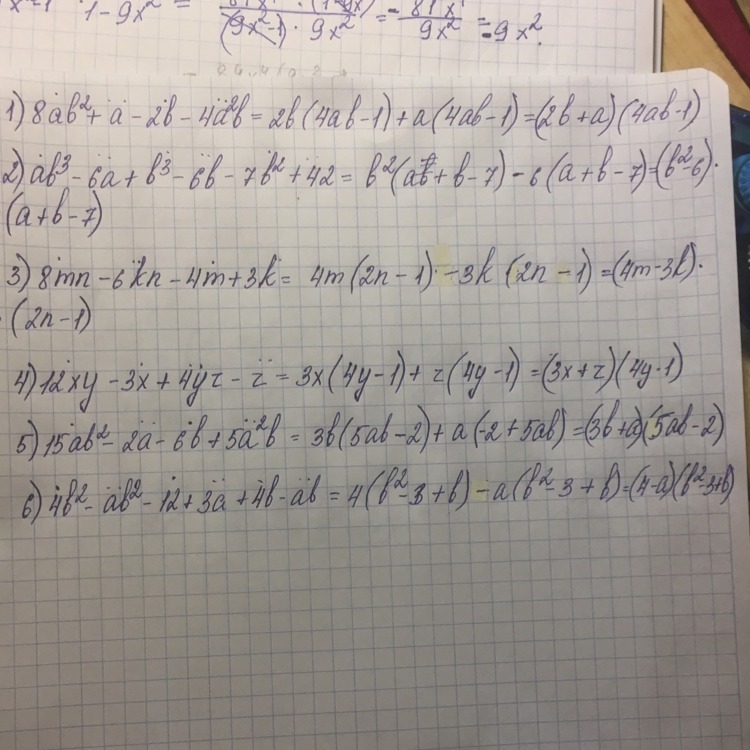 1 - 9x² = (9x²-1) · 9x² = - 9x² = -9x².
1) 8ab² + a - 2b - 4a²b = 2b(4ab-1) + a(4ab-1) = (2b+a)(4ab-1)
2) ab³ - 6a + b³ - 6b - 7b² + 42 = b²(a + b - 7) - 6(a+b-7) = (b²-6)·
(a+b-7)
3) 8mn - 6kn - 4m + 3k = 4m(2n-1) - 3k(2n-1) = (4m-3k)·
· (2n-1)
4) 12xy - 3x + 4yz - z = 3x(4y-1) + z(4y-1) = (3x+z)(4y-1)
5) 15ab² - 2a - 6b + 5a²b = 3b(5ab-2) + a(-2+5ab) = (3b+a)(5ab-2)
6) 4b² - ab² - 12 + 3a + 4b - ab = 4(b²-3+b) - a(b²-3+b) = (4-a)(b²-3+b)